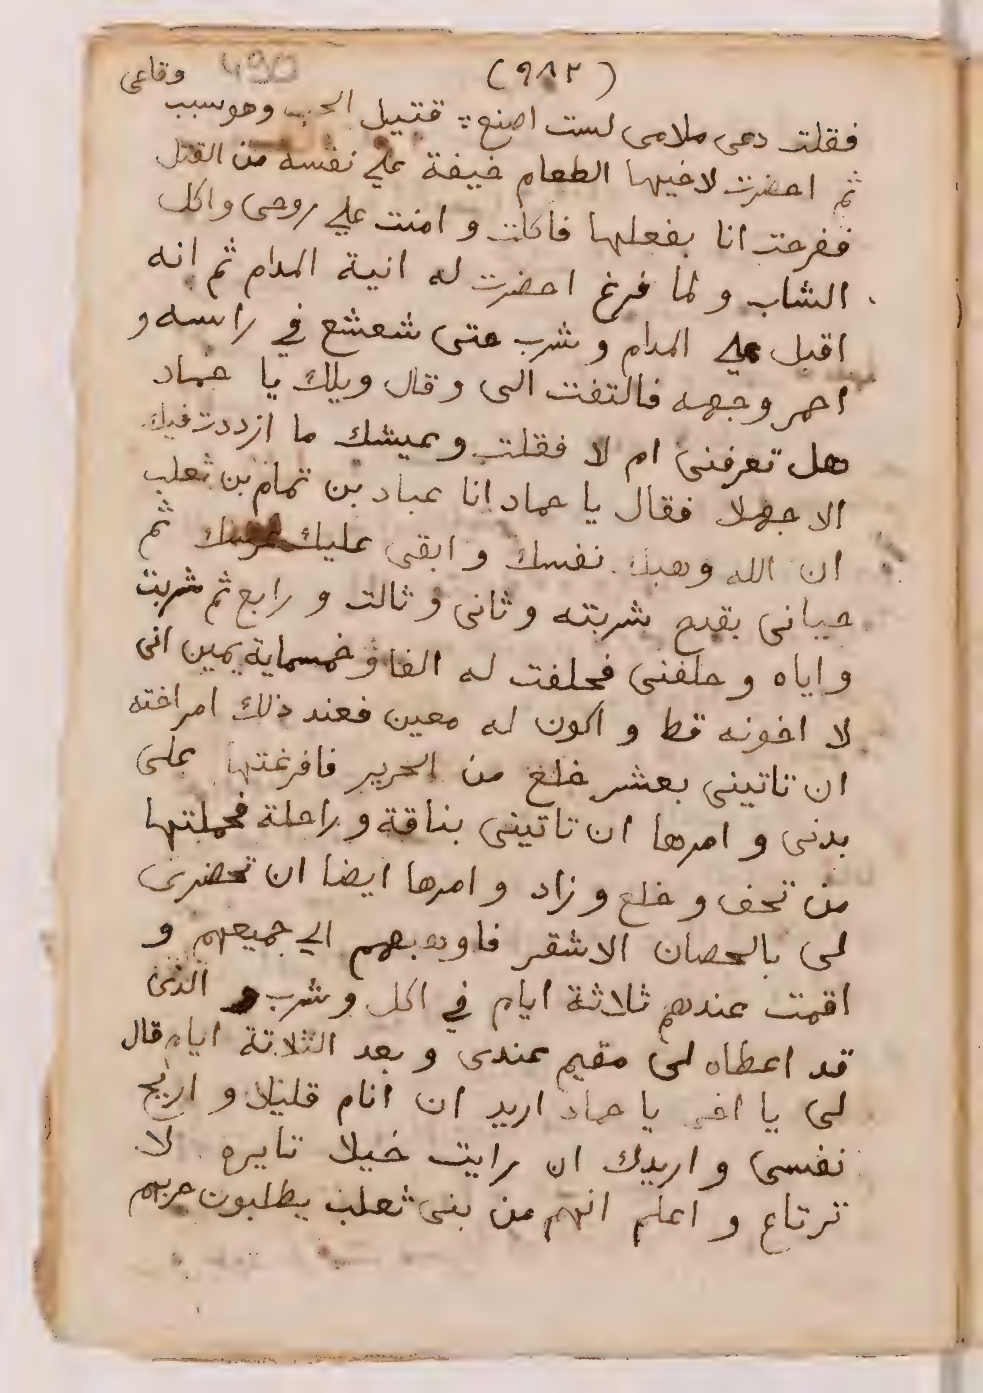 (٩٨٢) 490 وقاعى
فقلت دعى ملامى لست اصنع : قتيل الحب وهو سبب
ثم احضرت لاخيها الطعام خيفة على نفسه من القتل
ففرحت انا بفعلها فاكلت و امنت على روحى واكل
الشاب و لما فرغ احضرت له انية المدام ثم انه
اقبل على المدام و شرب حتى شعشع في راسه و
احمر وجهه فالتفت الى وقال ويلك يا حماد
هل تعرفنى ام لا فقلت وعيشك ما ازددت فيك
الا جهلا فقال يا حماد انا عباد بن تمام بن ثعلب
ان الله وهبك نفسك و ابقى عليك ثم
حيانى بقدح شربته و ثانى و ثالث و رابع ثم شربت
و اياه و حلفنى فحلفت له الفا و خمسماية يمين انى
لا اخونه قط و اكون له معين فعند ذلك امر اخته
ان تاتينى بعشر خلع من الحرير فافرغتها على
بدنى و امرها ان تاتينى بناقة و راحلة فحملتها
من تحف و خلع و زاد و امرها ايضا ان تحضرى
لى بالحصان الاشقر فاوهبهم الي جميعهم و
اقمت عندهم ثلاثة ايام في اكل و شرب و الذى
قد اعطاه لى مقيم عندى و بعد الثلاثة ايام قال
لى يا اخى يا حماد اريد ان انام قليلا و اريح
نفسى و اريدك ان رايت خيلا تايره لا
ترتاع و اعلم انهم من بنى ثعلب يطلبون حربهم